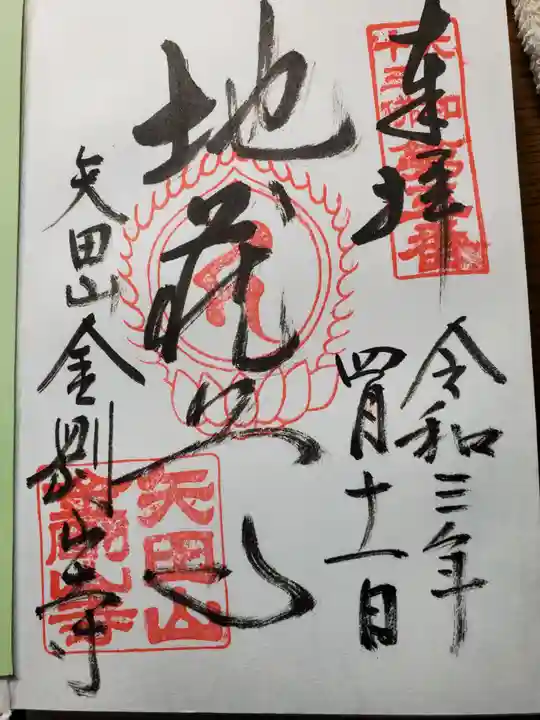 奉拝
令和三年
四月十一日
地蔵心
矢田山金剛山寺
大和
十三佛
第五番
矢田山
金剛山寺